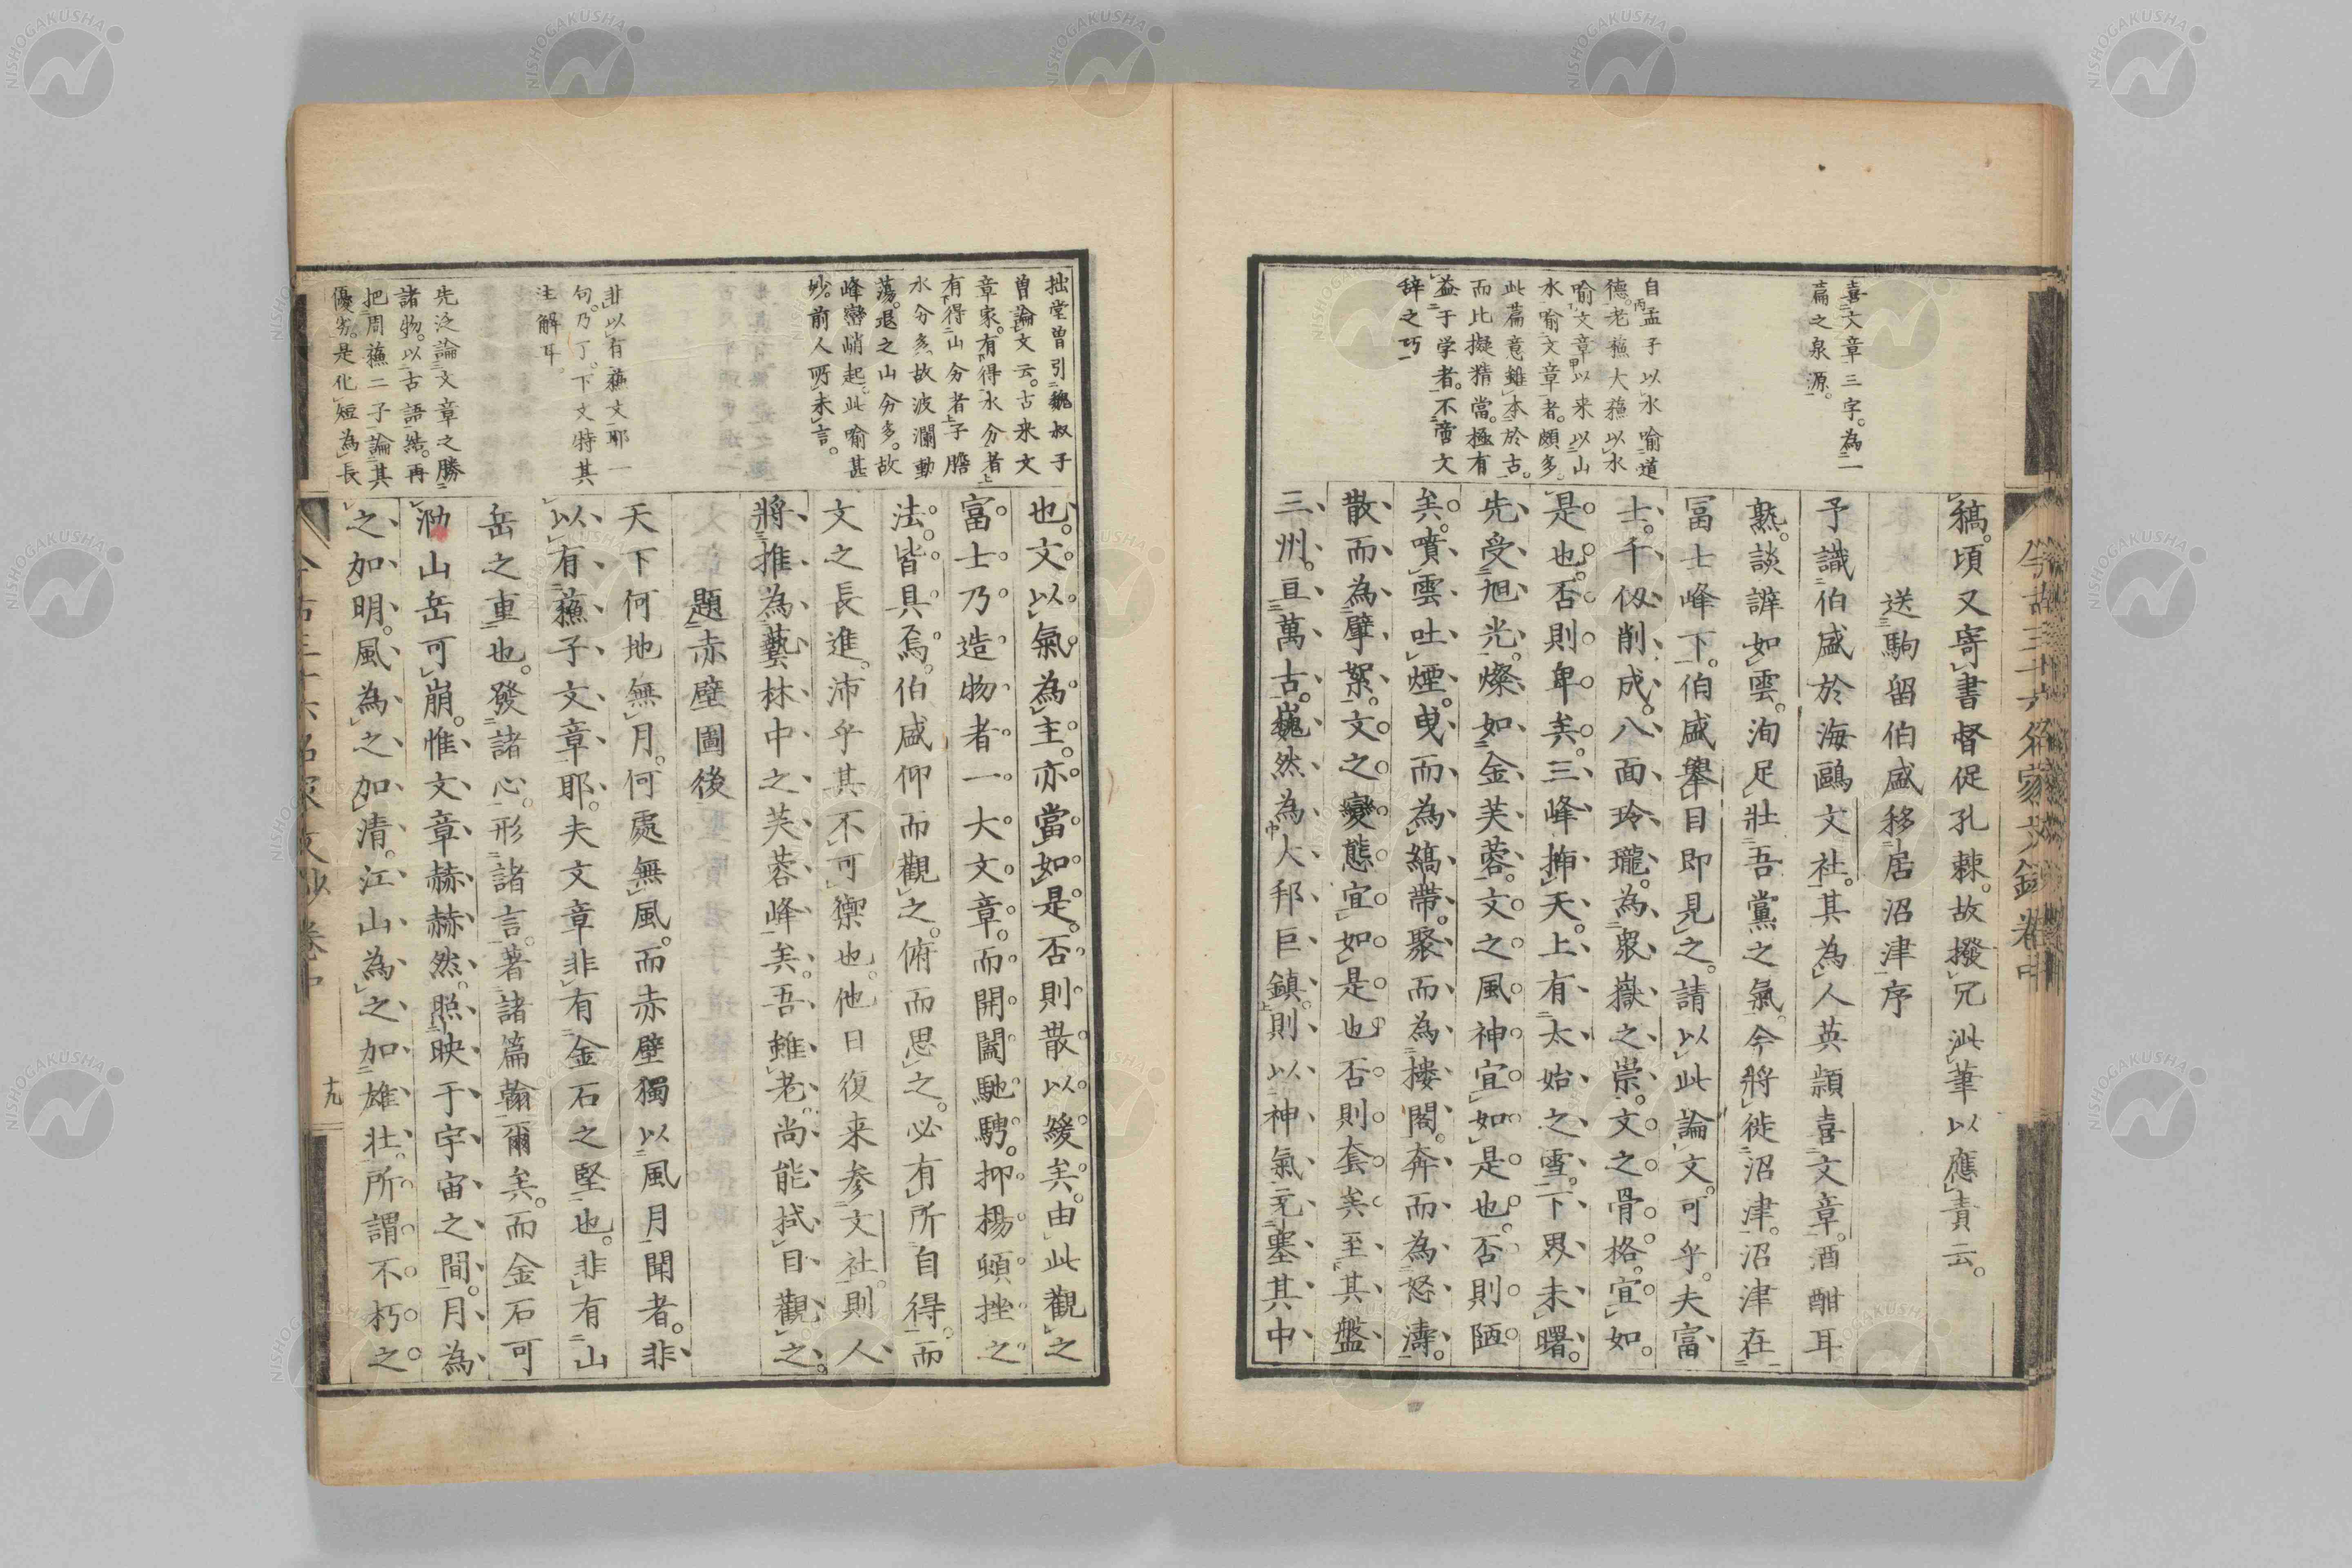 今古三十六名家文鈔卷中
喜文章三字。為一
篇之泉源。
自孟子以水喻道
德。老蘓大蘓以水
喻文章以来以山
水喻文章者。頗多。
此篇意雖本於古。
而比擬精當。極有
益于学者。不啻文
辞之巧
稿。頃又寄書督促孔棘。故撥冗泚筆以應責云。
送駒留伯盛移居沼津序
予識伯盛於海鷗文社。其為人英穎喜文章。酒酣耳
熟。談辨如雲。洵足壯吾黨之氣。今將徙沼津。沼津在
冨士峰下。伯盛舉目即見之。請以此論文。可乎。夫富
士。千仭削成。八面玲瓏。為衆嶽之崇。文之骨格。宜如。
是也。否則卑矣。三峰揷天。上有太始之雪。下界未曙。
先受旭光。燦如金芙蓉。文之風神宜如是也。否則陋
矣。噴雲吐煙。曳而為縞帶。聚而為楼閣。奔而為怒濤。
散而為擘絮。文之變態宜如是也否則套矣至其盤
三州。亘萬古。巍然為大邦巨鎮。則以神氣充塞其中
拙堂曽引魏叔子
曽論文云。古来文
章家。有得水分者
有得山分者子瞻
水分多故波瀾動
蕩。退之山分多。故
峰巒峭起。此喻甚
妙。前人所未言。
非以有蘓文耶一
句。乃了。下文特其
注解耳。
先泛論文章之勝
諸物。以古語結。再
把周蘓二子論其
優劣。是化短為長
也。文以氣為主。亦當如是。否則散以緩矣。由此觀之
富士乃造物者一大文章。而開闔馳騁。抑揚頓挫之
法。皆具焉。伯盛仰而觀之。俯而思之。必有所自得。而
文之長進。沛乎其不可禦也。他日復来參文社。則人
將推為藝林中之芙蓉峰矣。吾雖老。尚能拭目觀之。
題赤壁圖後
天下何地無月。何處無風。而赤壁獨以風月聞者。非
以有蘓子文章耶。夫文章非有金石之堅也。非有山
岳之重也。發諸心。形諸言。著諸篇翰爾矣。而金石可
泐山岳可崩。惟文章赫赫然。照映于宇宙之間。月為
之加明。風為之加清。江山為之加雄壮。所謂不朽之
十九